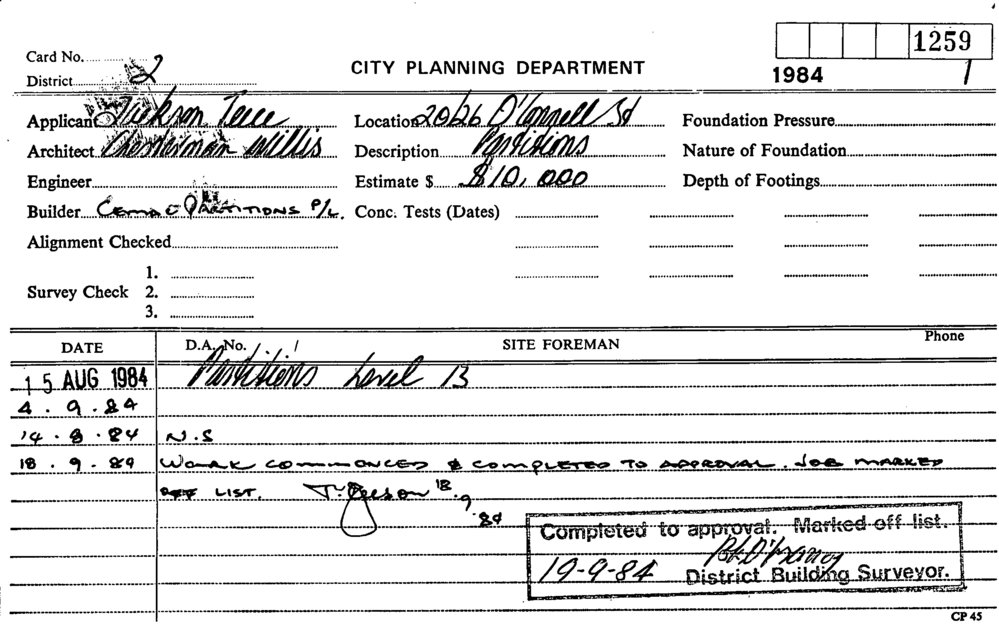 1259
Card No.
CITY PLANNING DEPARTMENT
1984 1
District 2
Applicant
Location 20/26 O'Connell St
Foundation Pressure
Architect Chesterman Willis
Description Partitions
Nature of Foundation
Engineer
Estimate $ $10,000
Depth of Footings
Builder PARTITIONS P/L.
Conc. Tests (Dates)
Alignment Checked
Survey Check
1.
2.
3.
DATE D.A. No. SITE FOREMAN Phone
15 AUG 1984 Partitions Level 13
4.9.84
14.8.84 N.S
18.9.84 WORK COMMONCED & COMPLETED TO APPROVAL. JOB MARKED
OFF LIST. 18.9.84
Completed to approval. Marked off list.
19-9-84 District Building Surveyor.
CP 45